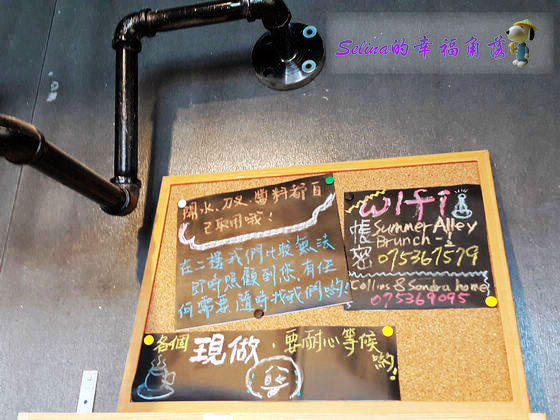 Selina的幸福角落
開水、刀叉、醬料都自
己取用哦!
在二樓我們比較無法
即時照顧到您,有任
何需要隨時找我們喲!
wifi
帳 Summer Alley
Brunch-2
密 075367579
Collins & Sondra home
075369095
各個現做,要耐心等候
喲!